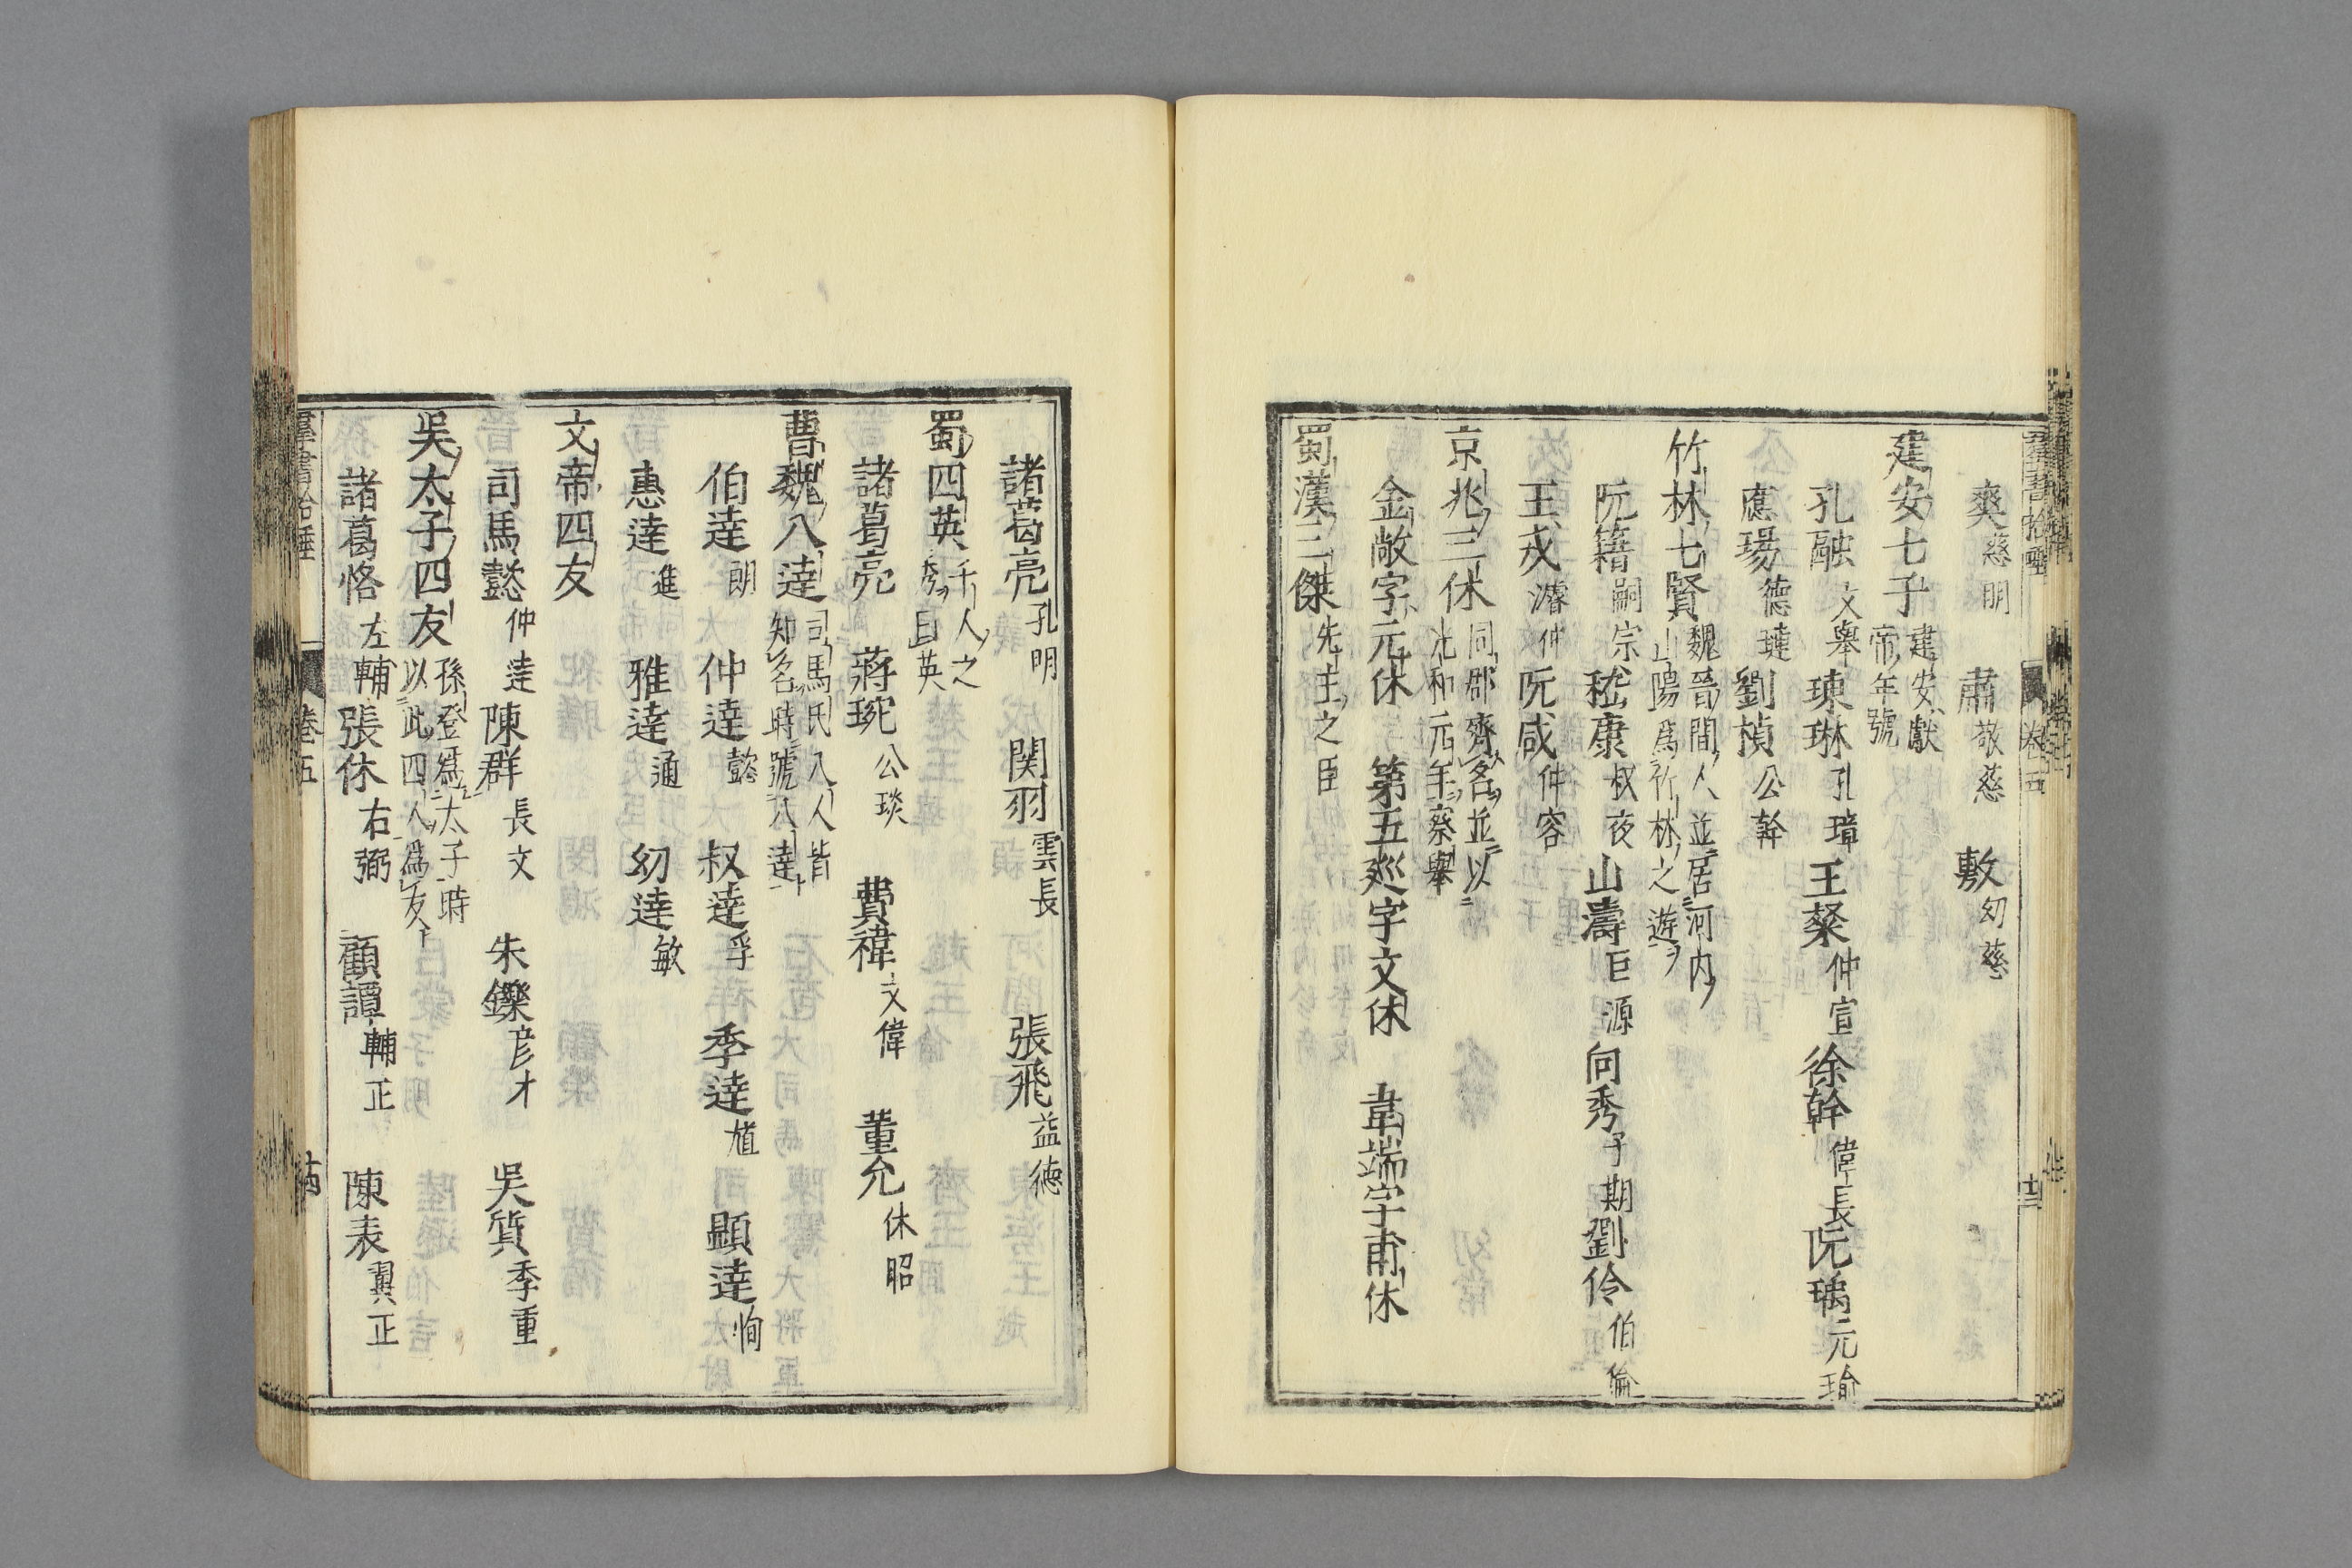 爽慈明 肅敬慈 敷幼慈
建安七子建安獻帝年號
孔融文舉 陳琳孔璋 王粲仲宣 徐幹偉長 阮瑀元瑜
應瑒德璉 劉楨公幹
竹林七賢魏晉間人並居河内山陽爲竹林之遊
阮籍嗣宗 嵇康叔夜 山濤巨源 向秀子期 劉伶伯倫
王戎濬仲 阮咸仲容
京兆三休同郡齊名並以光和元年察舉
金敞字元休 第五巡字文休 韋端字甫休
蜀漢三傑先主之臣
諸葛亮孔明 関羽雲長 張飛益德
蜀四英千人之秀曰英
諸葛亮 蔣琬公琰 費禕文偉 董允休昭
曹魏八達司馬氏八人皆知名時號八達
伯達朗 仲達懿 叔達孚 季達馗 顯達恂
惠達進 雅達通 幼達敏
文帝四友
司馬懿仲達 陳群長文 朱鑠彦才 吳質季重
吳太子四友孫登爲太子時以此四人爲友
諸葛恪左輔 張休右弼 顧譚輔正 陳表翼正
羣書拾唾 卷五